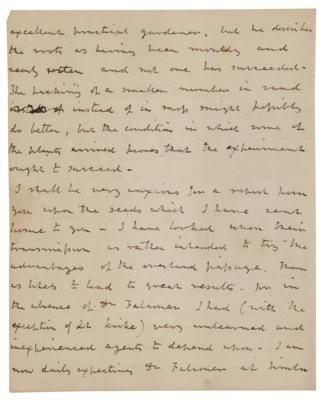 excellent practical gardener, but he describes
the roots as having been mouldy and
nearly rotten and not one has succeeded -
The packing of a smaller number in sand
instead of in moss might possibly
do better, but the condition in which some of
the plants arrived proves that the experiment
ought to succeed -
I shall be very anxious for a report from
you upon the seeds which I have sent
home to you - I have looked upon their
transmission as rather intended to try the
advantages of the overland passage, than
as likely to lead to great results - for in
the absence of Dr Falconer I had (with the
exception of Lt Kirke) very unlearned and
inexperienced agents to depend upon - I am
now daily expecting Dr Falconer at Simla